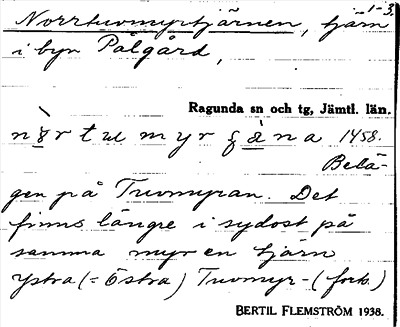 Norrtuvomyrtjärnen, tjärn -1-3.
i byn Pålgård,
Ragunda sn och tg, Jämtl. län.
1458.
Belä-
gen på Tuvomyran. Det
finns längre i sydost på
samma myr en tjärn
ystra (= Östra) Tuvomyr- (forts.)
BERTIL FLEMSTRÖM 1938.